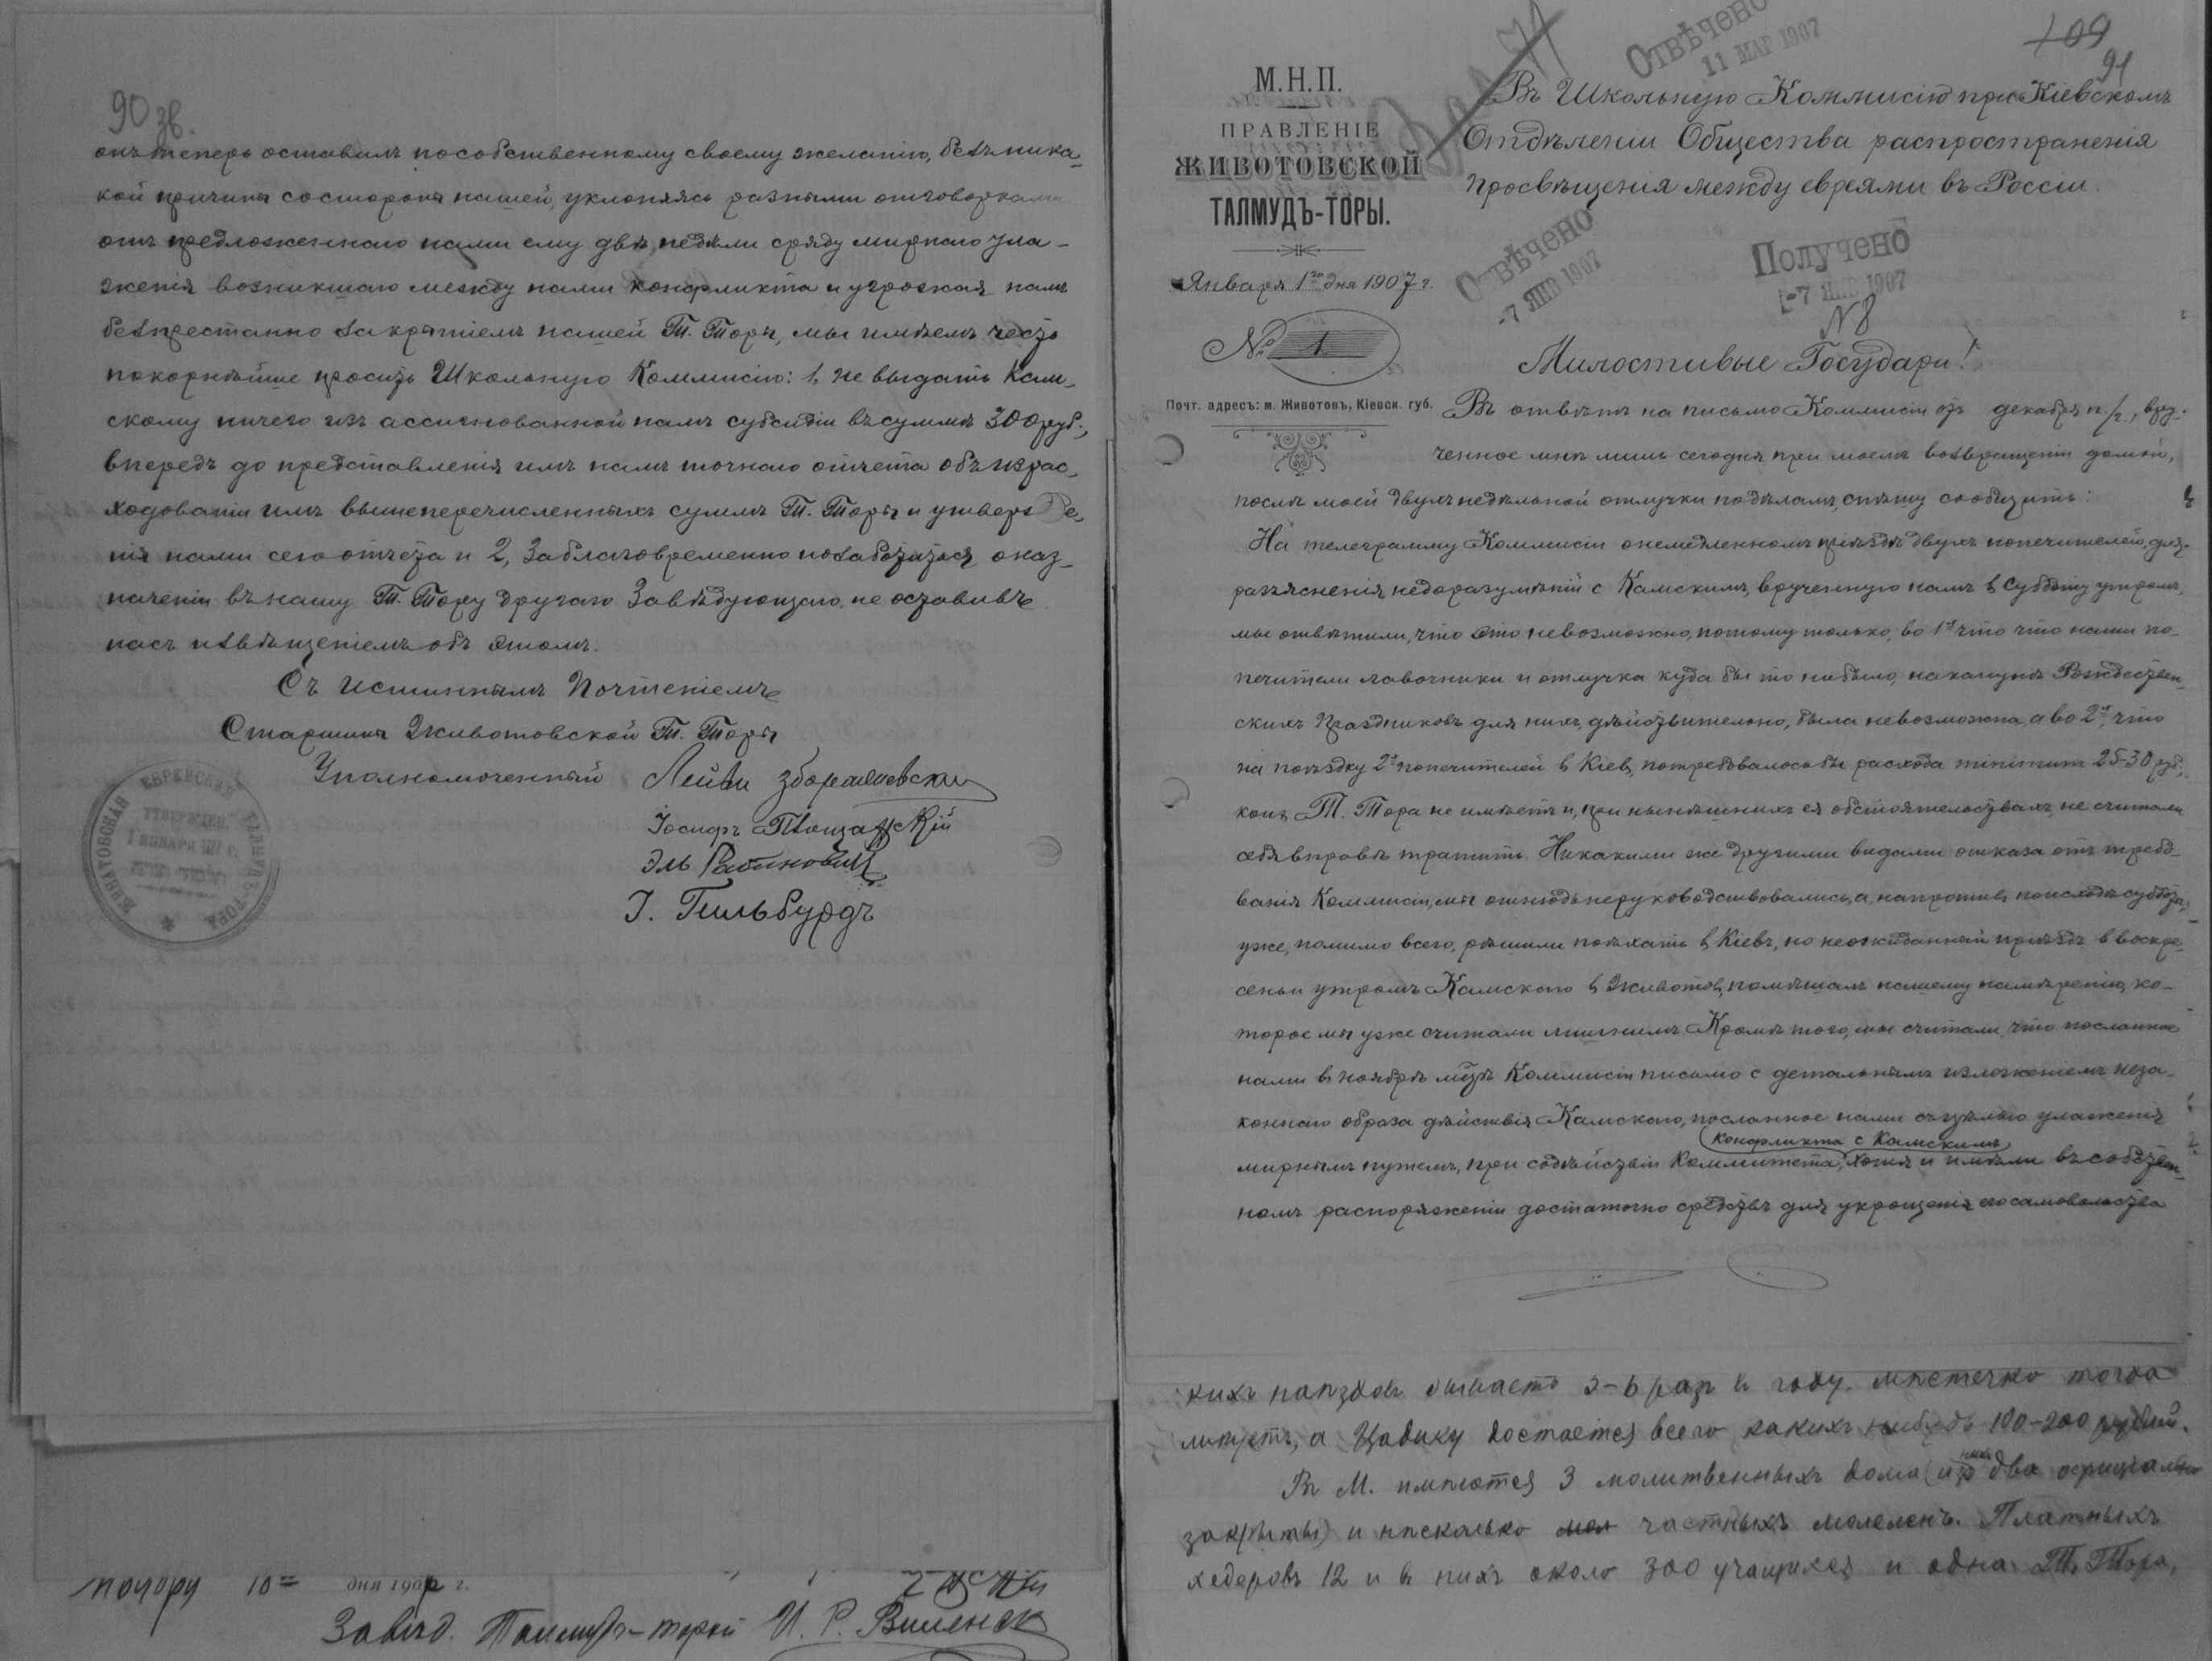 90 зв.
онъ теперь оставилъ по собственному своему желанію, безъ ника-
кой причины со стороны нашей, уклоняясь разными отговорками
отъ предложеннаго нами ему двѣ недѣли сряду мирнаго ула-
женія возникшаго между нами конфликта и угрожая намъ
безпрестанно закрытіемъ нашей Т. Торы, мы имѣемъ честь
покорнѣйше просить Школьную Коммисію: 1, не выдать Кам-
скому ничего изъ ассигнованной намъ субсидіи въ суммѣ 300 руб.,
впередъ до представленія имъ намъ точнаго отчета объ израс-
ходованіи имъ вышеперечисленныхъ суммъ Т. Торы и утвержде-
нія нами сего отчета и 2, Заблаговременно позаботиться о наз-
наченіи въ нашу Т. Тору другого Завѣдующаго, не оставивъ
насъ извѣщеніемъ объ этомъ.
Съ истиннымъ Почтеніемъ
Старшины Животовской Т. Торы
Уполномоченный Лейви
Іосифъ
Эль Рабиновичъ
І. Гильбурдъ
ЖИВАТОВСКАЯ ЕВРЕЙСКАЯ ТАЛМУДЪ-ТОРА
10 дня 190 г.
Завѣд. Талмудъ-торой И. Р. Виленск
109
91
Отвѣчено
11 МАР 1907
М.Н.П.
ПРАВЛЕНІЕ
ЖИВОТОВСКОЙ
ТАЛМУДЪ-ТОРЫ.
Января 1го дня 1907 г.
№ 1
Почт. адресъ: м. Животовъ, Кіевск. губ.
Въ Школьную Коммисію при Кіевскомъ
Отдѣленіи Общества распространенія
просвѣщенія между евреями въ Россіи.
Отвѣчено
-7 ЯНВ 1907
Получено
-7 ЯНВ 1907
№ 8
Милостивые Государи!
Въ отвѣтъ на письмо Коммисіи отъ декабря п/г., вру-
ченное мнѣ лишь сегодня при моемъ возвращеніи домой,
послѣ моей двухъ недѣльной отлучки по дѣламъ, спѣшу сообщить:
На телеграмму Коммисіи о немедленномъ пріѣздѣ двухъ попечителей, для
разъясненія недоразумѣній с Камскимъ, врученную намъ в Субботу утромъ,
мы отвѣтили, что это невозможно, потому только, во 1ыхъ что что наши по-
печители лавочники и отлучка куда бы то нибыло, наканунѣ Рождествен-
скихъ Праздниковъ для нихъ, дѣйствительно, была невозможна, а во 2ыхъ, что
на поѣздку 2хъ попечителей в Кіевъ, потребовалось бы расхода minimum 25-30 руб.,
коихъ Т. Тора не имѣетъ и, при нынѣшнихъ ея обстоятельствахъ, не считали
себя вправѣ тратить. Никакими же другими видами отказа отъ требо-
ванія Коммисіи, мы отнюдь не руководствовались, а, напротивъ, по исходѣ субботы,
уже, помимо всего, рѣшили поѣхать в Кіевъ, но неожиданный пріѣздъ в воскре-
сенье утромъ Камскаго в Животовъ, помѣшалъ нашему намѣренію, ко-
торое мы уже считали лишнимъ. Кромѣ того, мы считали, что посланное
нами въ ноябрѣ мцѣ Коммисіи письмо с детальнымъ изложеніемъ неза-
коннаго образа дѣйствія Камскаго, посланное нами съ цѣлью улаженія
конфликта с Камскимъ
мирнымъ путемъ, при содѣйствіи Коммитета, хотя и имѣли въ собствен-
номъ распоряженіи достаточно средствъ для укрощенія его самовольства
кихъ наѣздовъ бываетъ 5-6 разъ в году. мѣстечко тогда
ликуетъ, а Цадику достается всего какихъ нибудь 100-200 рублей.
Въ М. имѣются 3 молитвенныхъ дома (изъ нихъ два официально
закрыты) и нѣсколько частныхъ молеленъ. Платныхъ
хедеровъ 12 и в нихъ около 300 учащихся и одна Т. Тора,